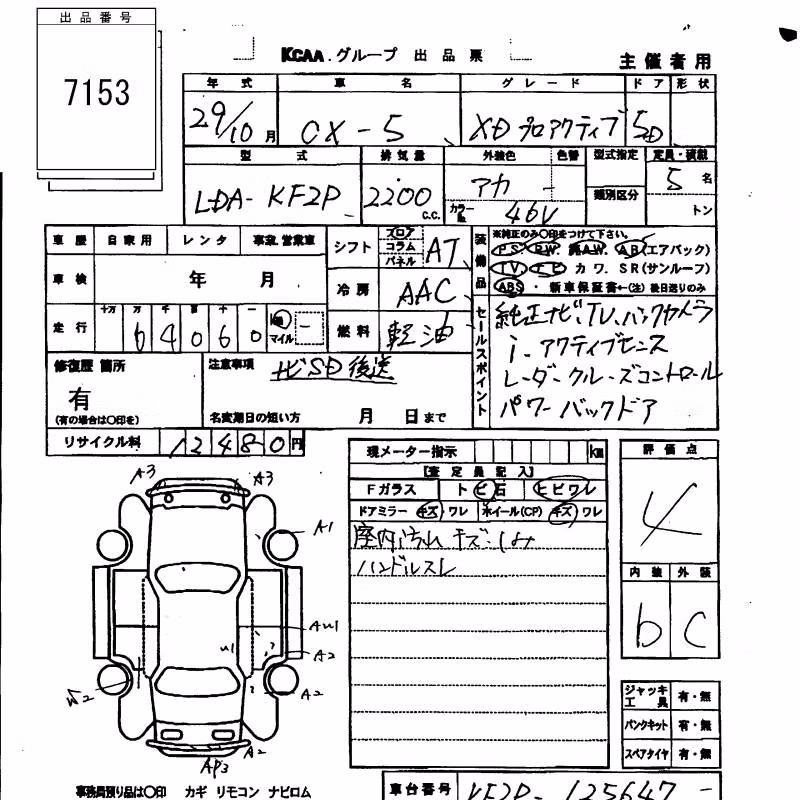 出品番号
7153
KCAA.グループ 出品票
主催者用
年式 車名 グレード ドア 形状
29/10月 CX-5 XDプロアクティブ 5D
型式 排気量 外装色 色替 型式指定 定員・積載
LDA-KF2P 2200 C.C. アカ - 類別区分 5名
カラーNo. 46V トン
車歴 自家用 レンタ 事業・営業車
シフト フロア コラム パネル AT
装備品 ※純正のみ〇印をつけて下さい。
PS. PW. 純AW. AB(エアバック)
TV ナビ カワ. SR(サンルーフ)
ABS ・ 新車保証書←(注)後日送りのみ
車検 年 月
冷房 AAC
走行 十万 万 千 百 十 一
64060 km マイル -
燃料 軽油
セールスポイント
純正ナビ、TV、バックカメラ
i-アクティブセンス
レーダークルーズコントロール
パワーバックドア
修復歴 箇所
有
(有の場合は〇印を)
注意事項 ナビSD後送
名変期日の短い方 月 日まで
リサイクル料 12480円
現メーター指示 km
【査定員記入】
Fガラス トビ石 ヒビワレ
ドアミラー キズ・ワレ ホイール(CP) キズ・ワレ
室内汚れ キズ・シミ
ハンドルスレ
評価点
4
内装 外装
b C
A3 A3
A1
AU1
U1 A2
W2 A2
A2
AP3
ジャッキ工具 有・無
パンクキット 有・無
スペアタイヤ 有・無
事務局預り品は〇印 カギ リモコン ナビロム
車台番号 KF2P-125647 -